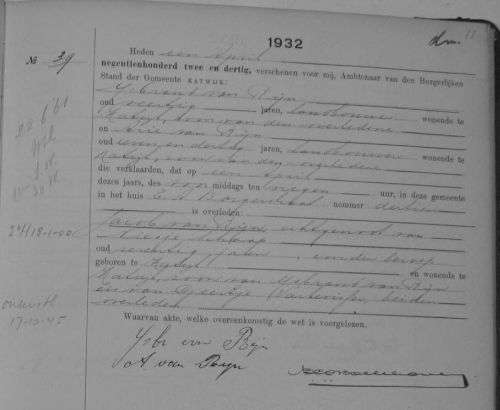 11
dm.
1932
№ 39
Heden een April
negentienhonderd twee en dertig, verschenen voor mij, Ambtenaar van den Burgerlijken
Stand der Gemeente KATWIJK:
IJsbrant van Rijn
oud veertig jaren, landbouwer wonende te
Katwijk, zoon van den overledene
en Arie van Rijn
oud zeven en dertig jaren, landbouwer wonende te
Katwijk, zoon van den overledene
die verklaarden, dat op een April
dezes jaars, des voor middags ten negen uur, in deze gemeente
in het huis nommer dertien
is overleden:
Jacob van Rijn, echtgenoot van
oud zeventig jaren, zonder beroep
geboren te Katwijk en wonende te
Katwijk, zoon van IJsbrant van Rijn
en van beiden
overleden
Waarvan akte, welke overeenkomstig de wet is voorgelezen.
IJsbr van Rijn
A van Rijn
22 6 '61
2eH 18-1-00
17-10-45